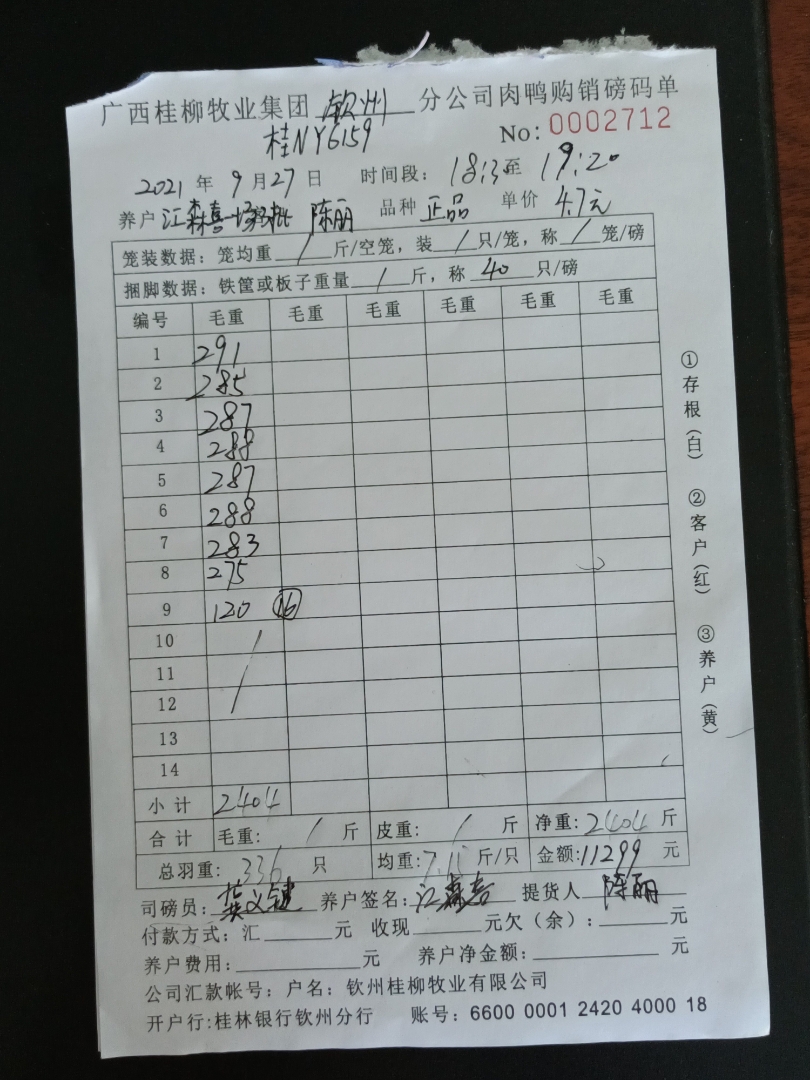 广西桂柳牧业集团 钦州 分公司肉鸭购销磅码单
桂NY6159 No: 0002712
2021 年 9 月 27 日 时间段: 18:3 至 19:20
养户 江森喜一场 陈丽 品种 正品 单价 4.7元
笼装数据: 笼均重 / 斤/空笼, 装 / 只/笼, 称 / 笼/磅
捆脚数据: 铁筐或板子重量 / 斤, 称 40 只/磅
编号 毛重 毛重 毛重 毛重 毛重 毛重
1 291
2 285
3 287
4 288
5 287
6 288
7 283
8 275
9 120 16
10 /
11
12 /
13
14
小计 2404
合计 毛重: / 斤 皮重: / 斤 净重: 2404 斤
总羽重: 336 只 均重: 7.15 斤/只 金额: 11299 元
司磅员: 龚义键 养户签名: 江森喜 提货人 陈丽
付款方式: 汇 元 收现 元欠(余): 元
养户费用: 元 养户净金额: 元
公司汇款帐号: 户名: 钦州桂柳牧业有限公司
开户行:桂林银行钦州分行 账号: 6600 0001 2420 4000 18
①存根(白) ②客户(红) ③养户(黄)